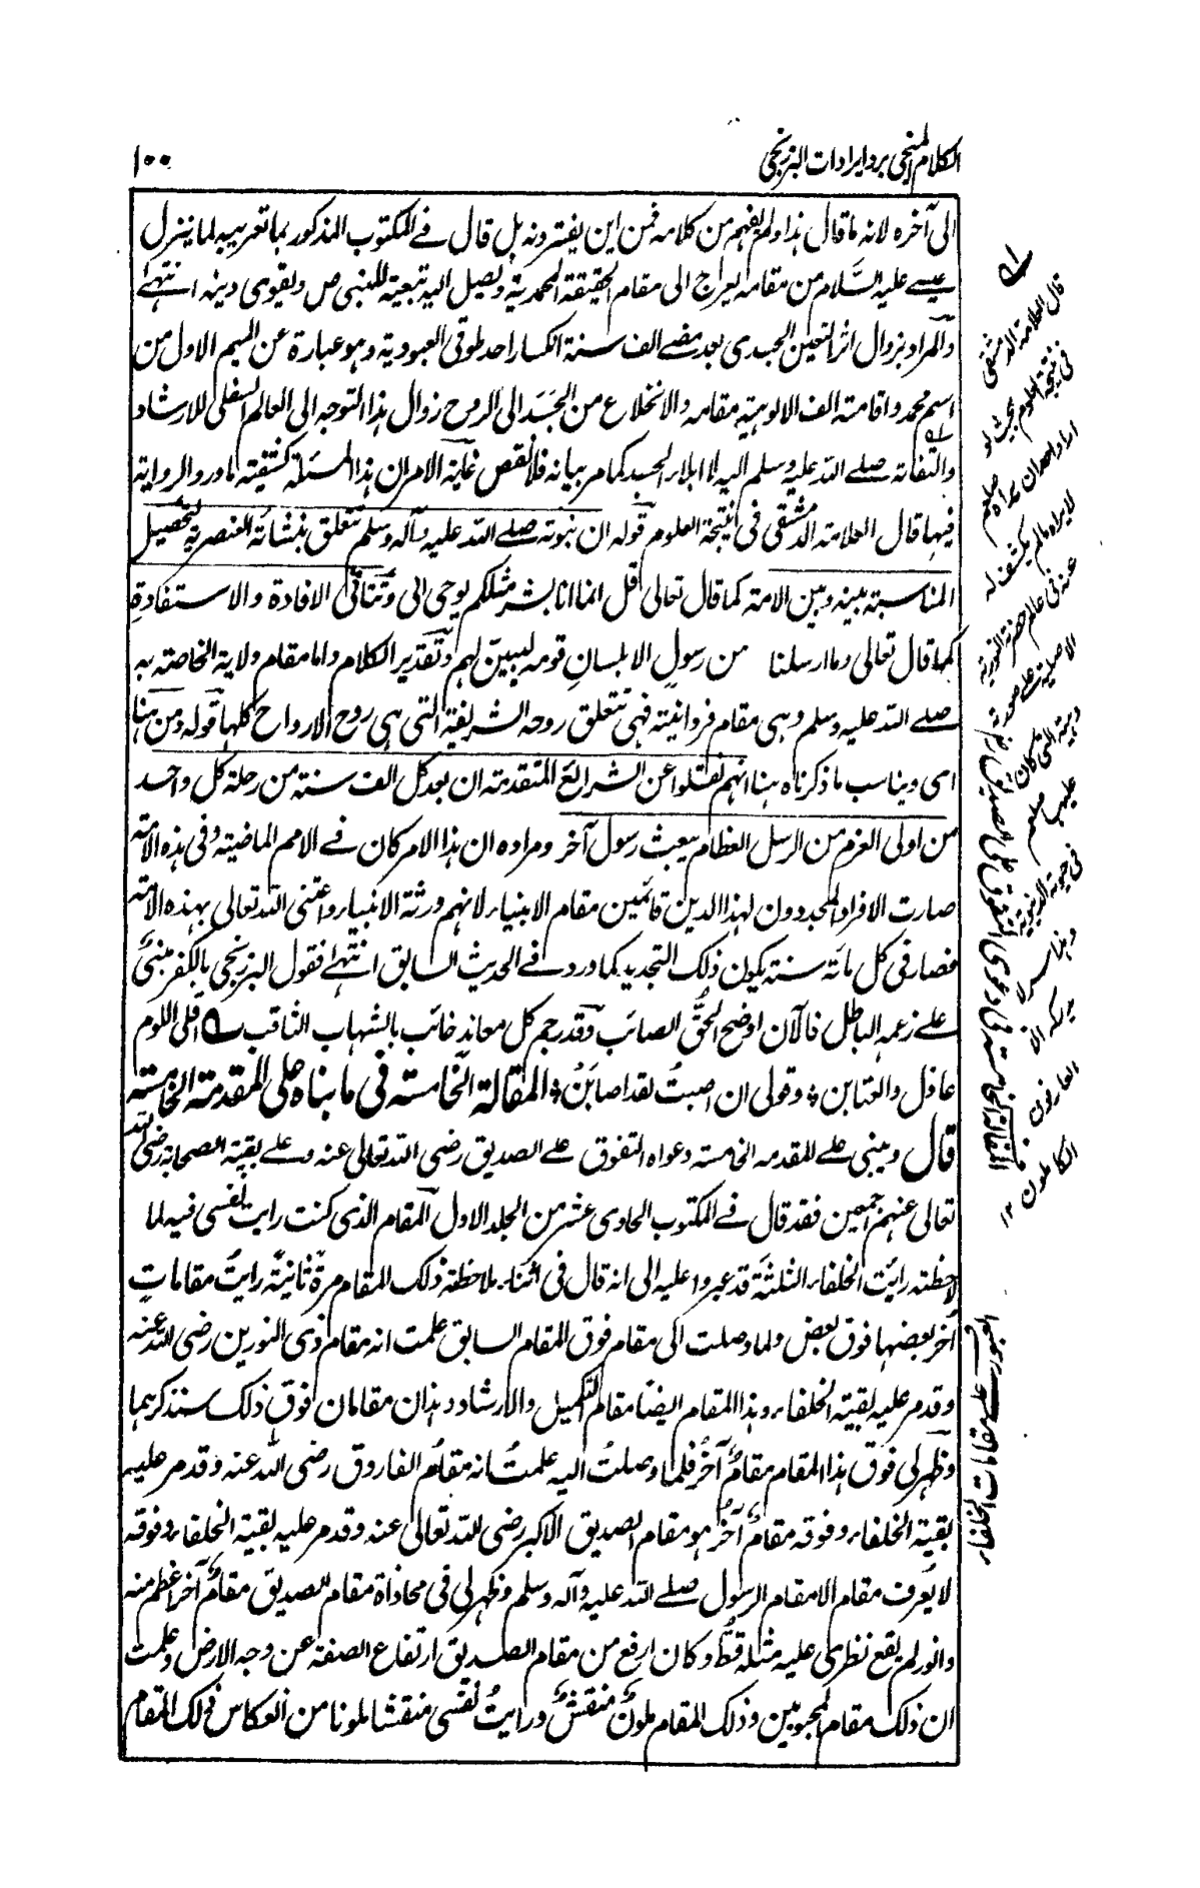 الكلام المنجي برد ايرادات البرزنجي
١٠٠
الى آخره لانه ما قال هذا ولم يفهم من كلامه فمن اين يفترونه بل قال في المكتوب المذكور بما تعريبه لما ينزل
عيسى عليه السلام من مقامه العراج الى مقام الحقيقة المحمدية ويصل اليه تبعية للنبي ص ويقوي دينه انتهى
والمراد بزوال اثر التعين الجسدي بعد مضي الف سنة انكسار احد طوقي العبودية وهو عبارة عن الميم الاول من
اسم محمد واقامة الف الالوهية مقامه والانخلاع من الجسد الى الروح زوال هذا التوجه الى العالم السفلي للارشاد
والتفاته صلى الله عليه وسلم اليه لا ابلاء الجسد كما مر بيانه فلا نقص غاية الامر ان هذا المسئلة كشفية ما ورد الرواية
فيها قال العلامة الدمشقي في نتيجة العلوم قوله ان نبوته صلى الله عليه وآله وسلم تتعلق بنشائة العنصرية لتحصيل
المناسبة بينه وبين الامة كما قال تعالى قل انما انا بشر مثلكم يوحى الى وتتاتى الافادة والاستفادة
كما قال تعالى وما ارسلنا من رسول الا بلسان قومه ليبين لهم وتقدير الكلام واما مقام ولاية الخاصة به
صلى الله عليه وسلم وهي مقام فردانيته فهي تتعلق روحه الشريفة التي هي روح الارواح كلها قوله ومن هنا
اى ويناسب ما ذكرناه هنا انهم نقلوا عن الشرائع المتقدمة ان بعد كل الف سنة من رحلة كل واحد
من اولى العزم من الرسل العظام يبعث رسول آخر ومراده ان هذا الامر كان في الامم الماضية وفي هذه الامة
صارت الافراد المجددون لهذا الدين قائمين مقام الانبياء لانهم ورثة الانبياء واعتنى الله تعالى بهذه الامة
فصار في كل مائة سنة يكون ذلك التجديد كما ورد في الحديث السابق انتهى فقول البرزنجي بالكفر مبني
على زعمه الباطل فالآن اوضح الحق الصائب وقد رجم كل معاند خائب بالشهاب الثاقب اقلي اللوم
عاذل والعتابن ۞ وقولي ان اصبت لقد اصابن ۞ المقالة الخامسة في ما بناه على المقدمة الخامسة
قال ويبنى على المقدمه الخامسة دعواه التفوق على الصديق رضي الله تعالى عنه وعلى بقية الصحابة رضي الله
تعالى عنهم اجمعين فقد قال في المكتوب الحادى عشر من الجلد الاول المقام الذى كنت رايت نفسى فيه لما
لاحظته رايت الخلفاء الثلثة قد عبروا عليه الى انه قال في اثناء ملاحظة ذلك المقام مرة ثانية رايت مقامات
اُخر بعضها فوق بعض ولما وصلت الى مقام فوق المقام السابق علمت انه مقام ذى النورين رضى الله عنه
وقد مر عليه بقية الخلفاء وهذا المقام ايضا مقام التكميل والارشاد وهذان مقامان فوق ذلك سنذكرهما
وظهر لى فوق هذا المقام مقام آخر فلما وصلت اليه علمت انه مقام الفاروق رضى الله عنه وقد مر عليه
بقية الخلفاء وفوقه مقام آخر هو مقام الصديق الاكبر رضى الله تعالى عنه وقد مر عليه بقية الخلفاء وفوقه
لا يعرف مقام الا مقام الرسول صلى الله عليه وآله وسلم وظهر لى في محاذاة مقام الصديق مقام آخر اعظم منه
وانور لم يقع نظرى عليه مثله قط وكان ارفع من مقام الصديق ارتفاع الصفة عن وجه الارض وعلمت
ان ذلك مقام المحبوبين وذلك المقام ملون منقش ورايت نفسى منقشا ملونا من انعكاس ذلك المقام
قال العلامة الدمشقي
في نتيجة العلوم بحيث لو
اراد احد ان يراه صلعم
لا يراه ما لم يكشف له
عنه في عالم حضرة النورية
الاصلية على صورة
عليها صلعم
في حيوته الدنيوية
العارفون
الكاملون ١٢
المقالة الخامسة في دعوى التفوق على الصديق رض